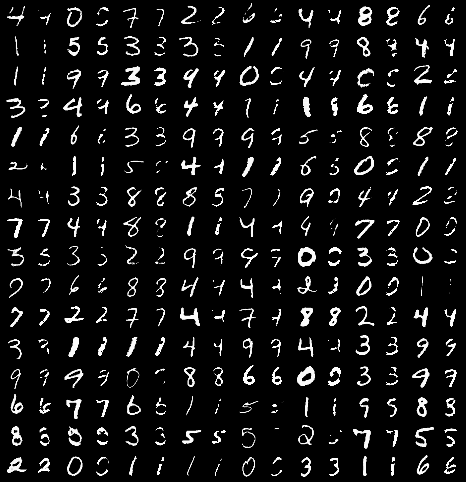 4 4 0 0 7 7 2 2 6 6 4 4 8 8 6 6
1 1 5 5 3 3 3 3 1 1 9 9 8 8 4 4
1 1 9 9 3 3 9 9 0 0 4 4 0 0 2 2
3 3 4 4 6 6 4 4 1 1 1 8 6 6 1 1
1 1 6 6 3 3 9 9 9 9 5 5 8 8 8 8
2 2 1 1 5 4 4 1 1 6 6 0 0 1 1
4 4 3 3 8 8 8 8 7 7 9 9 4 4 2 2
7 7 4 4 8 8 1 1 4 4 9 9 7 7 0 0
3 3 3 3 2 2 9 9 9 9 0 0 3 3 0 0
7 7 6 6 8 8 4 4 4 4 2 2 0 0 1 1
7 7 2 2 7 7 4 4 7 7 8 8 2 2 4 4
3 3 1 1 1 1 4 4 9 9 4 4 3 3 9 9
9 9 9 9 0 8 8 6 6 0 0 3 3 9 9
6 6 7 7 6 6 1 1 5 1 1 9 9 8 8
8 8 8 8 3 3 5 5 5 2 7 7 5 5
2 2 0 0 1 1 1 1 0 0 3 3 1 1 6 6